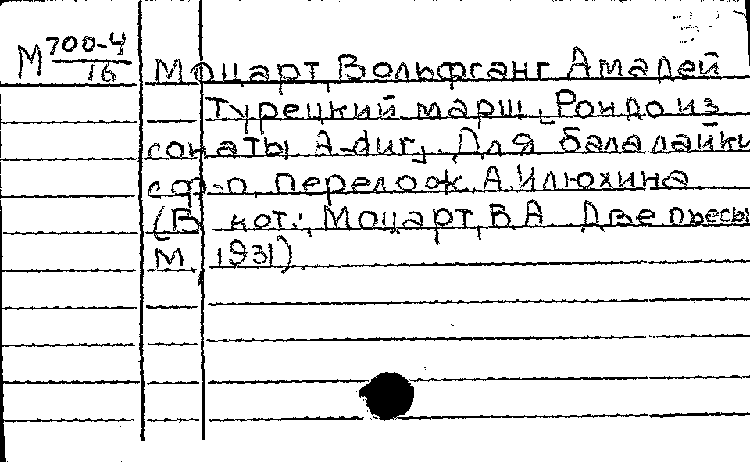 М 700-4/16
Моцарт, Вольфганг Амадей
Турецкий марш. Рондо из
сонаты A-dur, Для балалайки
с ф-п. перелож. А. Илюхина
(В кот.: Моцарт, В.А. Две пьесы
М, 1931)